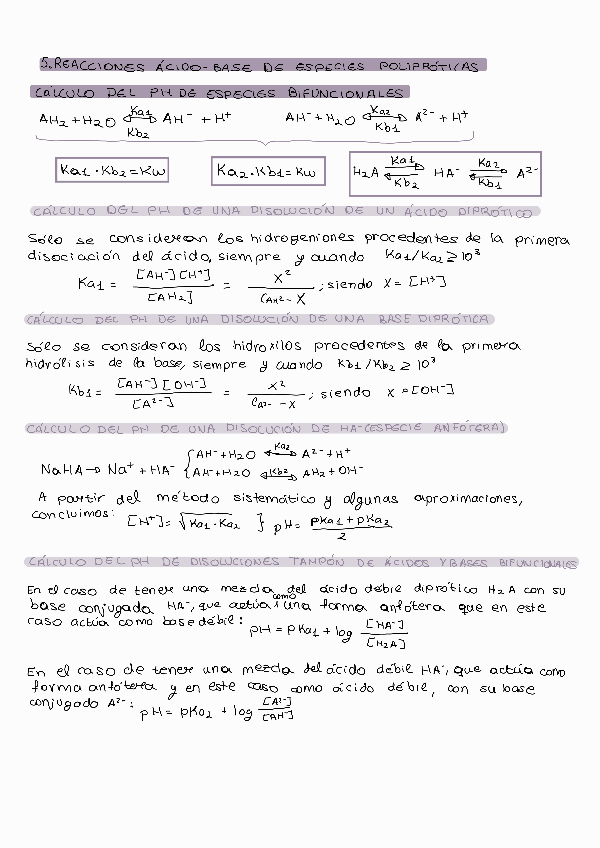 5. REACCIONES ÁCIDO-BASE DE ESPECIES POLIPRÓTICAS
CÁLCULO DEL PH DE ESPECIES BIFUNCIONALES
AH₂ + H₂O ⇌ (Ka₁ / Kb₂) AH⁻ + H⁺    AH⁻ + H₂O ⇌ (Ka₂ / Kb₁) A²⁻ + H⁺
Ka₁ · Kb₂ = Kw    Ka₂ · Kb₁ = Kw    H₂A ⇌ (Ka₁ / Kb₂) HA⁻ ⇌ (Ka₂ / Kb₁) A²⁻
CÁLCULO DEL PH DE UNA DISOLUCIÓN DE UN ÁCIDO DIPRÓTICO
Sólo se consideran los hidrogeniones procedentes de la primera
disociación del ácido, siempre y cuando Ka₁/Ka₂ ≥ 10³
Ka₁ = [AH⁻][H⁺] / [AH₂] = x² / (C_AH₂ - x) ; siendo x = [H⁺]
CÁLCULO DEL PH DE UNA DISOLUCIÓN DE UNA BASE DIPRÓTICA
Sólo se consideran los hidroxilos procedentes de la primera
hidrólisis de la base, siempre y cuando Kb₁/Kb₂ ≥ 10³
Kb₁ = [AH⁻][OH⁻] / [A²⁻] = x² / (C_A²⁻ - x) ; siendo x = [OH⁻]
CÁLCULO DEL PH DE UNA DISOLUCIÓN DE HA⁻ (ESPECIE ANFÓTERA)
AH⁻ + H₂O ⇌ (Ka₂) A²⁻ + H⁺
NaHA → Na⁺ + HA⁻ {
AH⁻ + H₂O ⇌ (Kb₂) AH₂ + OH⁻
A partir del método sistemático y algunas aproximaciones,
concluimos: [H⁺] = √(Ka₁ · Ka₂) } pH = (pKa₁ + pKa₂) / 2
CÁLCULO DEL PH DE DISOLUCIONES TAMPÓN DE ÁCIDOS Y BASES BIFUNCIONALES
En el caso de tener una mezcla del ácido débil diprótico H₂A con su
base conjugada HA⁻, que actúa como una forma anfótera que en este
caso actúa como base débil: pH = pKa₁ + log [HA⁻] / [H₂A]
En el caso de tener una mezcla del ácido débil HA⁻, que actúa como
forma anfótera y en este caso como ácido débil, con su base
conjugado A²⁻: pH = pKa₂ + log [A²⁻] / [AH⁻]